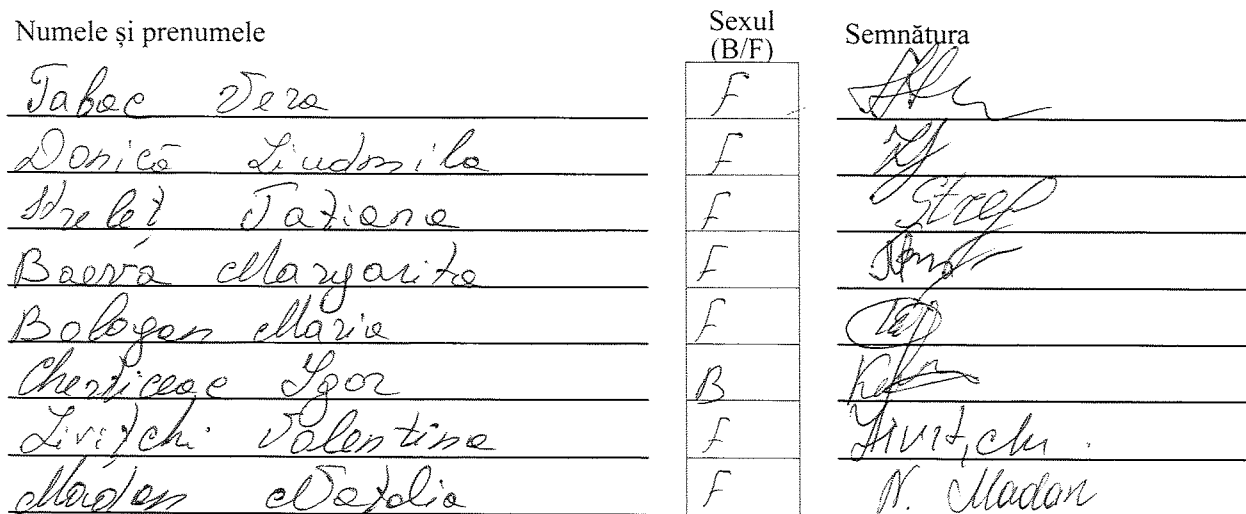 Numele și prenumele Sexul (B/F) Semnătura
Tabac Vera F
Donică Liudmila F
Streleț Tatiana F Stref
Baeva Margarita F
Bologan Maria F
Igor B
Livițchi Valentina F Livițchi
Madan Natalia F N. Madan